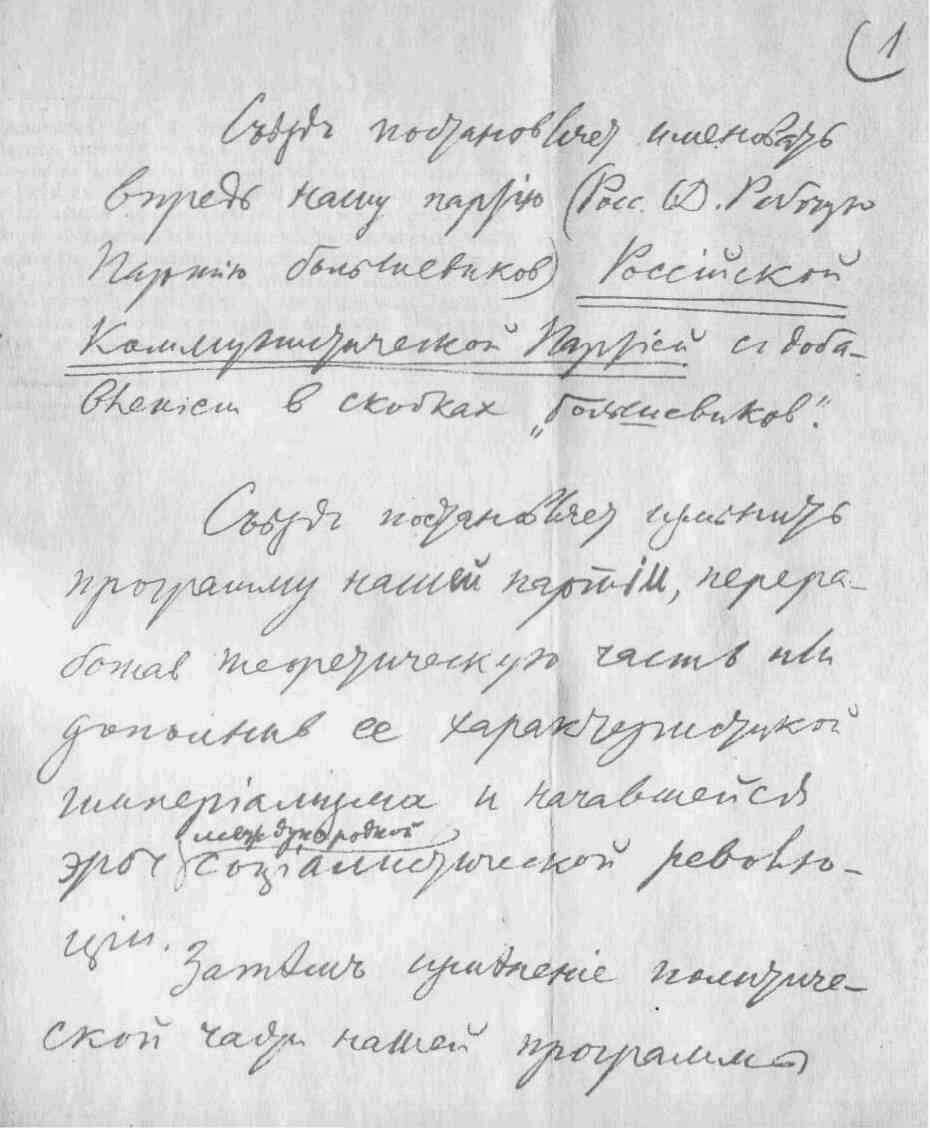 1
Съѣздъ постановляет именовать
впредь нашу партію (Росс. СД. Рабочую
Партию большевиков) Россійской
Коммунистической Партіей с доба-
вленіем в скобках „большевиков".
Съѣздъ постановляет измѣнить
программу нашей партіи, перера-
ботав теоретическую часть или
дополнив ее характеристикой
империализма и начавшейся
международной
эры социалистической револю-
ціи.
Затѣмъ измѣненіе политиче-
ской части нашей программы